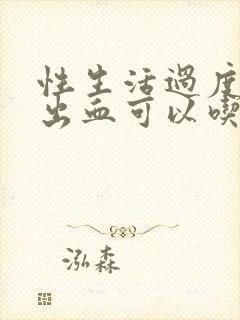 性生活過度
出血可以喫
泓森